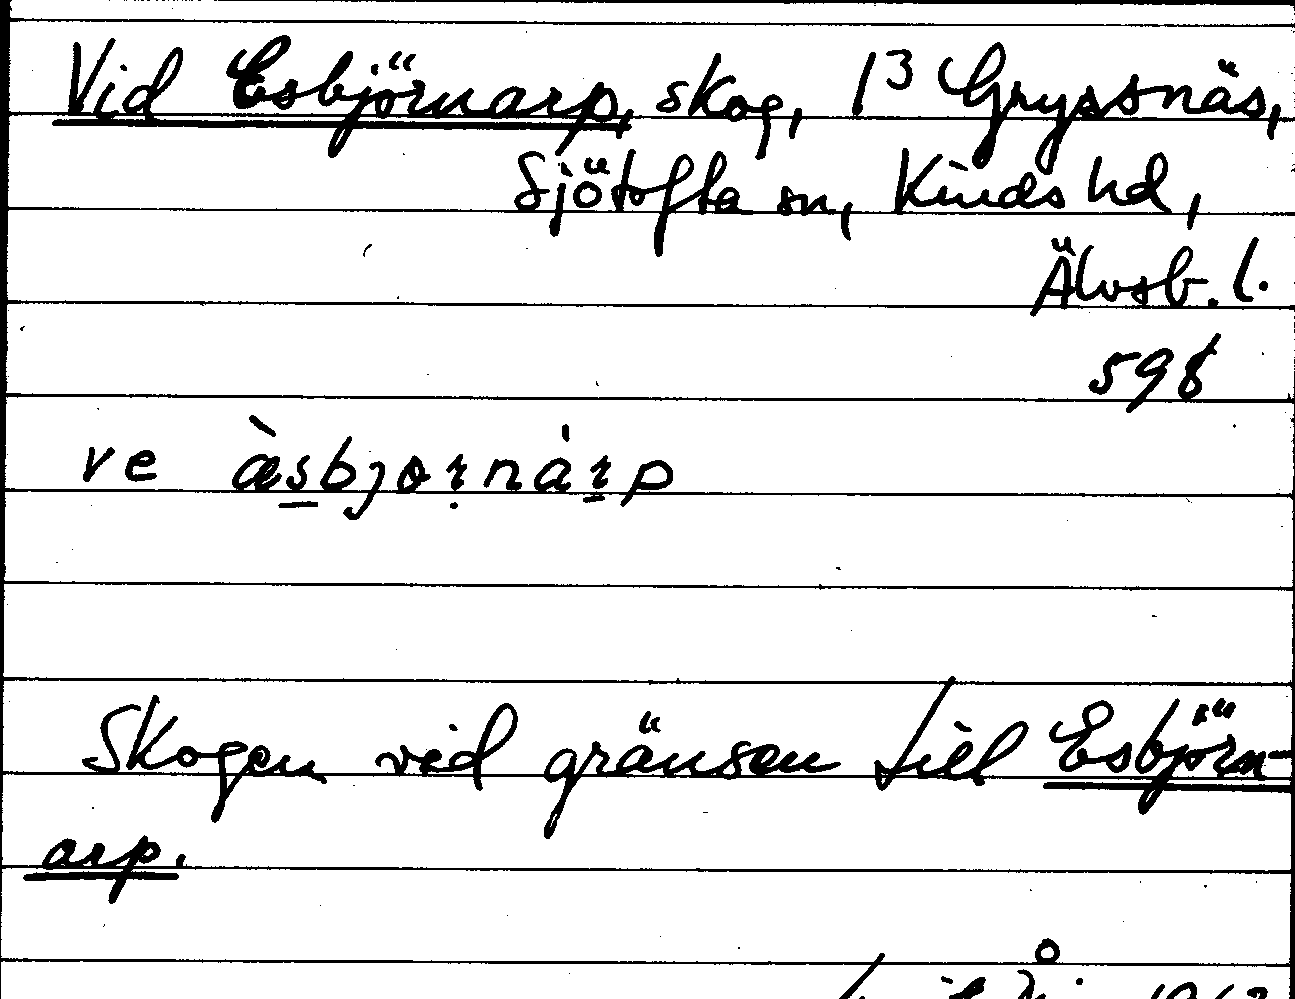 Vid Esbjörnarp, skog, 1³ Gryssnäs,
Sjötofta sn, Kinds hd,
Älvsb. l.
598
ve æ̀sbjornȧrp
Skogen vid gränsen till Esbjörn-
arp.